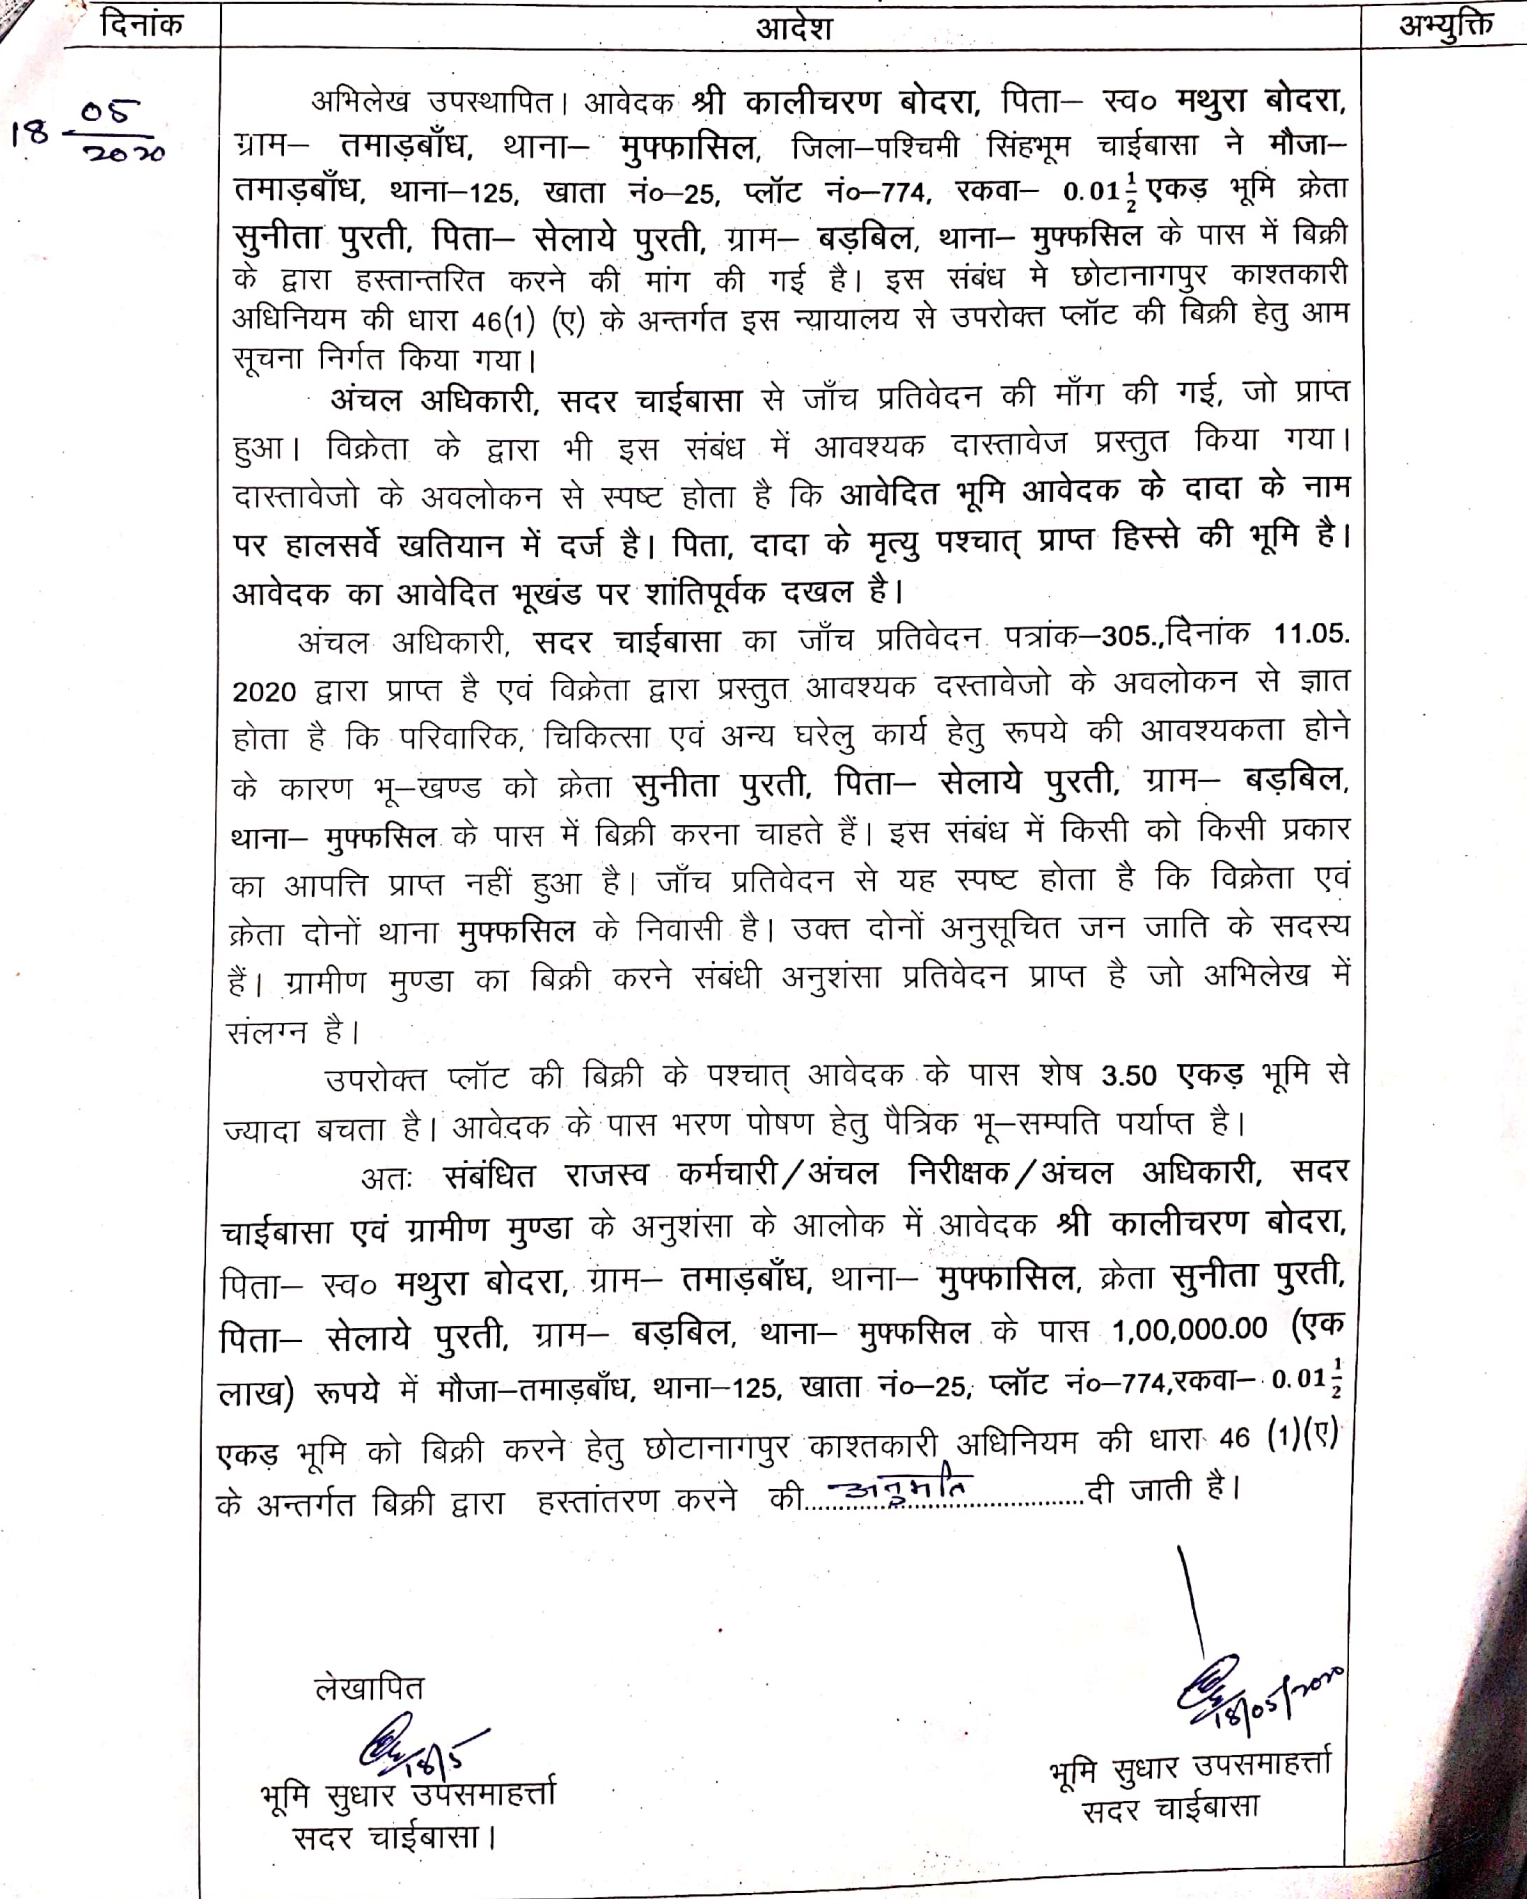 दिनांक आदेश अभ्युक्ति
18-05/2020
अभिलेख उपस्थापित। आवेदक श्री कालीचरण बोदरा, पिता– स्व० मथुरा बोदरा,
ग्राम– तमाड़बाँध, थाना– मुफ्फासिल, जिला–पश्चिमी सिंहभूम चाईबासा ने मौजा–
तमाड़बाँध, थाना–125, खाता नं०–25, प्लॉट नं०–774, रकवा– 0.01½ एकड़ भूमि क्रेता
सुनीता पुरती, पिता– सेलाये पुरती, ग्राम– बड़बिल, थाना– मुफ्फसिल के पास में बिक्री
के द्वारा हस्तान्तरित करने की मांग की गई है। इस संबंध मे छोटानागपुर काश्तकारी
अधिनियम की धारा 46(1) (ए) के अन्तर्गत इस न्यायालय से उपरोक्त प्लॉट की बिक्री हेतु आम
सूचना निर्गत किया गया।
अंचल अधिकारी, सदर चाईबासा से जाँच प्रतिवेदन की माँग की गई, जो प्राप्त
हुआ। विक्रेता के द्वारा भी इस संबंध में आवश्यक दास्तावेज प्रस्तुत किया गया।
दास्तावेजो के अवलोकन से स्पष्ट होता है कि आवेदित भूमि आवेदक के दादा के नाम
पर हालसर्वे खतियान में दर्ज है। पिता, दादा के मृत्यु पश्चात् प्राप्त हिस्से की भूमि है।
आवेदक का आवेदित भूखंड पर शांतिपूर्वक दखल है।
अंचल अधिकारी, सदर चाईबासा का जाँच प्रतिवेदन पत्रांक–305.,दिनांक 11.05.
2020 द्वारा प्राप्त है एवं विक्रेता द्वारा प्रस्तुत आवश्यक दस्तावेजो के अवलोकन से ज्ञात
होता है कि परिवारिक, चिकित्सा एवं अन्य घरेलु कार्य हेतु रूपये की आवश्यकता होने
के कारण भू–खण्ड को क्रेता सुनीता पुरती, पिता– सेलाये पुरती, ग्राम– बड़बिल,
थाना– मुफ्फसिल के पास में बिक्री करना चाहते हैं। इस संबंध में किसी को किसी प्रकार
का आपत्ति प्राप्त नहीं हुआ है। जाँच प्रतिवेदन से यह स्पष्ट होता है कि विक्रेता एवं
क्रेता दोनों थाना मुफ्फसिल के निवासी है। उक्त दोनों अनुसूचित जन जाति के सदस्य
हैं। ग्रामीण मुण्डा का बिक्री करने संबंधी अनुशंसा प्रतिवेदन प्राप्त है जो अभिलेख में
संलग्न है।
उपरोक्त प्लॉट की बिक्री के पश्चात् आवेदक के पास शेष 3.50 एकड़ भूमि से
ज्यादा बचता है। आवेदक के पास भरण पोषण हेतु पैत्रिक भू–सम्पति पर्याप्त है।
अतः संबंधित राजस्व कर्मचारी/अंचल निरीक्षक/अंचल अधिकारी, सदर
चाईबासा एवं ग्रामीण मुण्डा के अनुशंसा के आलोक में आवेदक श्री कालीचरण बोदरा,
पिता– स्व० मथुरा बोदरा, ग्राम– तमाड़बाँध, थाना– मुफ्फासिल, क्रेता सुनीता पुरती,
पिता– सेलाये पुरती, ग्राम– बड़बिल, थाना– मुफ्फसिल के पास 1,00,000.00 (एक
लाख) रूपये में मौजा–तमाड़बाँध, थाना–125, खाता नं०–25, प्लॉट नं०–774,रकवा– 0.01½
एकड़ भूमि को बिक्री करने हेतु छोटानागपुर काश्तकारी अधिनियम की धारा 46 (1)(ए)
के अन्तर्गत बिक्री द्वारा हस्तांतरण करने की......अनुमति......दी जाती है।
18/05/2020
लेखापित
18/5
भूमि सुधार उपसमाहर्त्ता
सदर चाईबासा
भूमि सुधार उपसमाहर्त्ता
सदर चाईबासा।